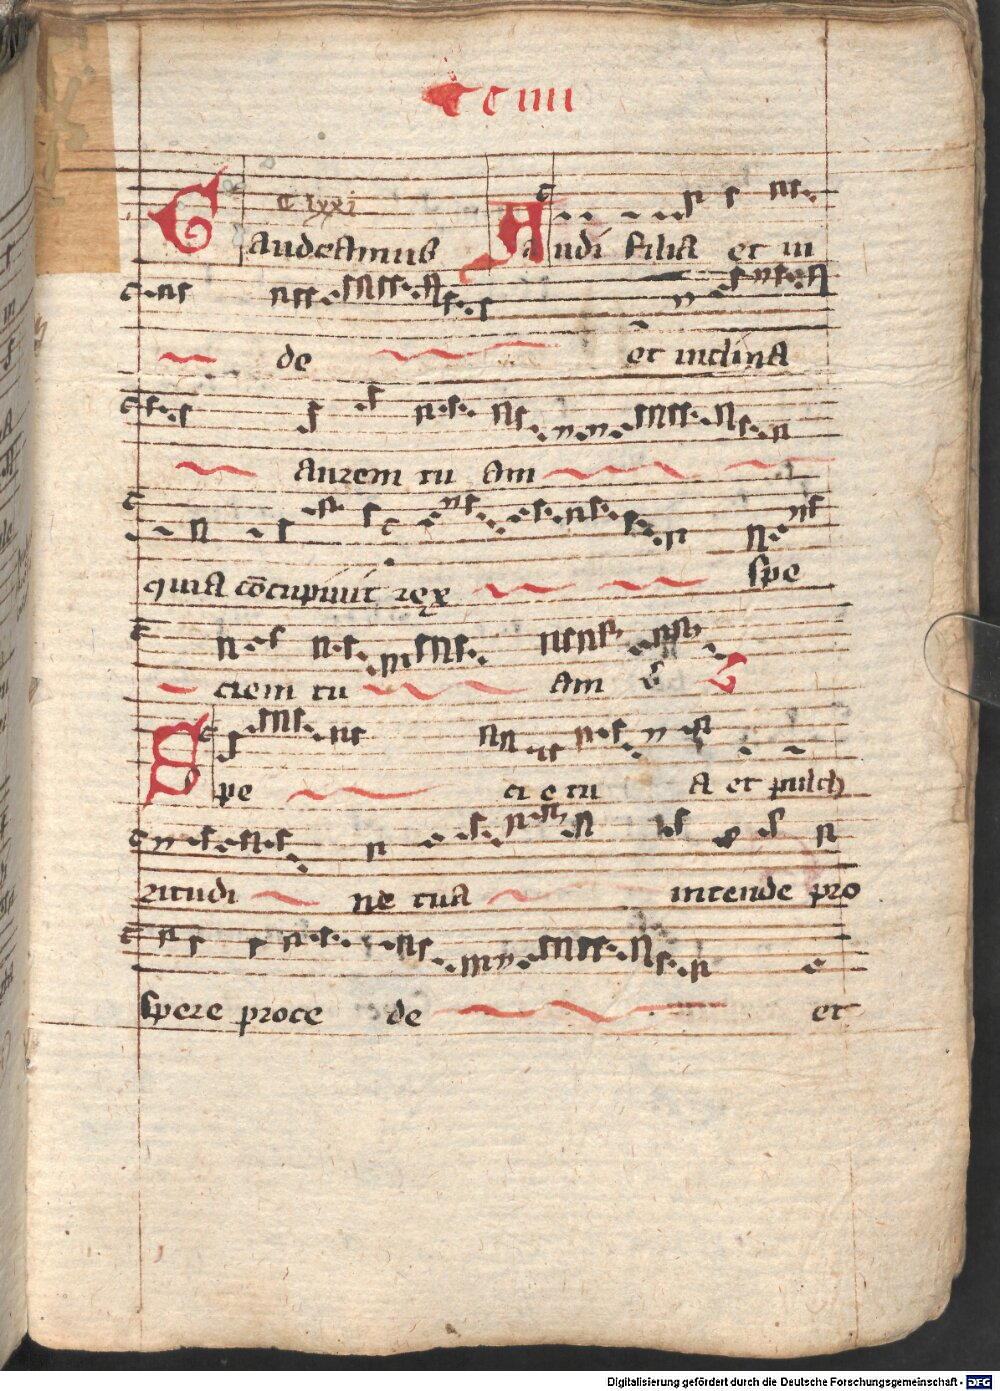 CCIIII
C lxxi
Gaudeamus Audi filia et in
de et inclina
aurem tu am
quia co͞cupiuit rex spe
ciem tu am G
Spe ci e tu a et pulch
ritudi ne tua intende pro
spere proce de et
Digitalisierung gefördert durch die Deutsche Forschungsgemeinschaft - DFG